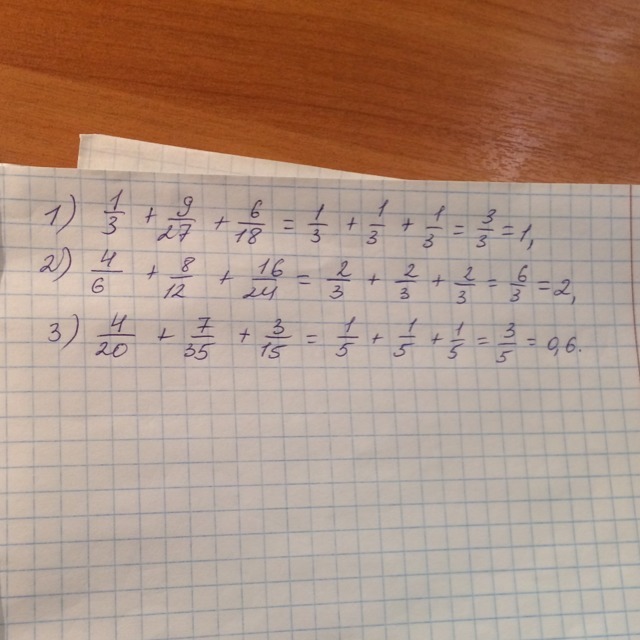 1) 1/3 + 9/27 + 6/18 = 1/3 + 1/3 + 1/3 = 3/3 = 1,
2) 4/6 + 8/12 + 16/24 = 2/3 + 2/3 + 2/3 = 6/3 = 2,
3) 4/20 + 7/35 + 3/15 = 1/5 + 1/5 + 1/5 = 3/5 = 0,6.